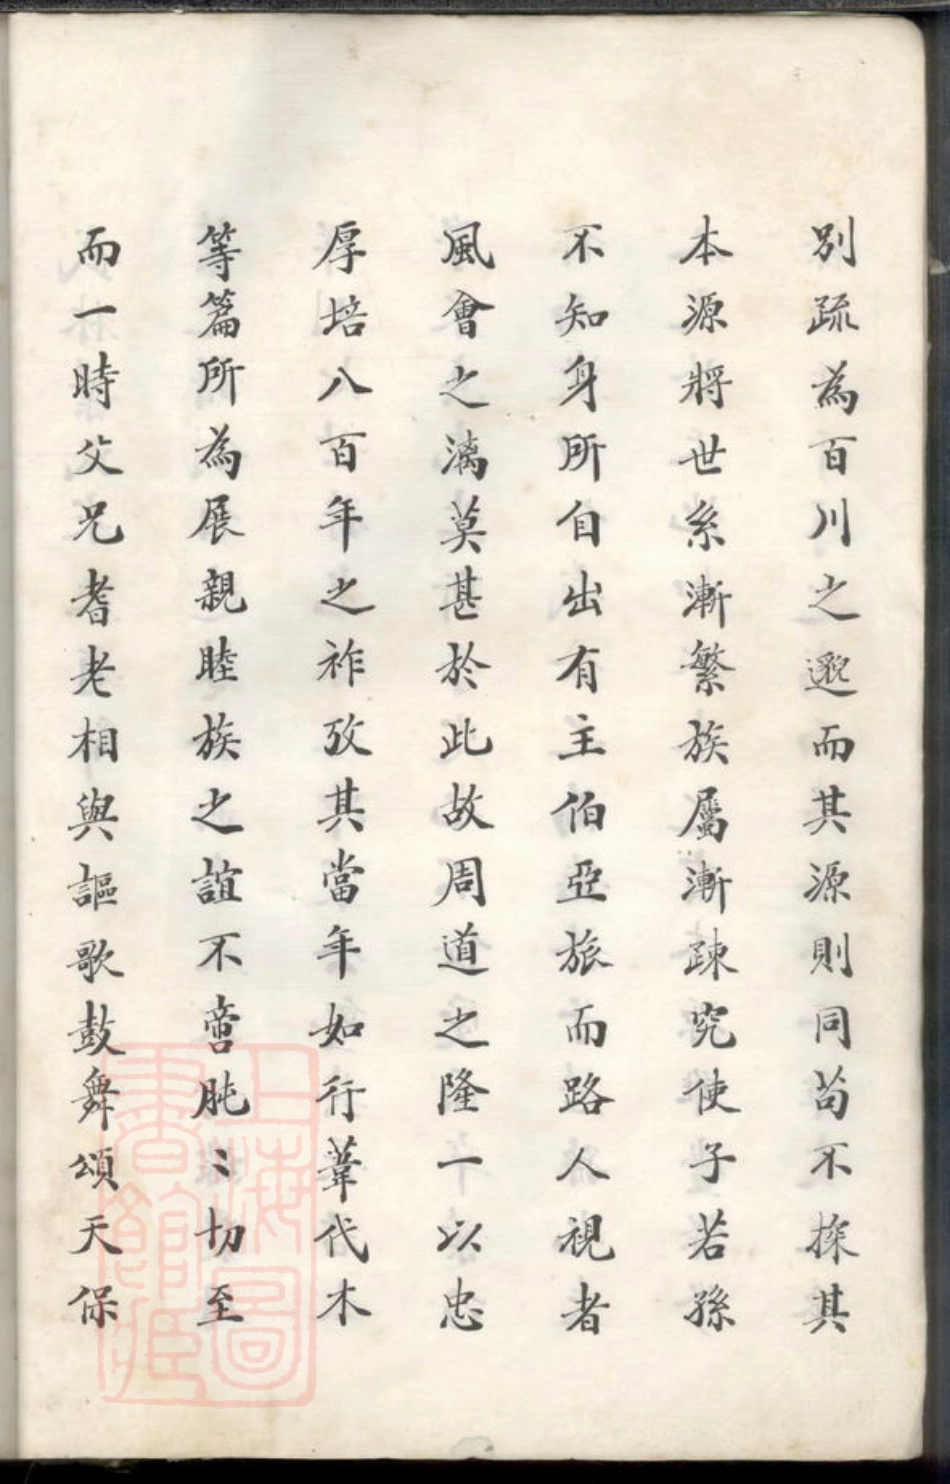 別疏為百川之邈而其源則同茍不探其
本源將世系漸繁族屬漸踈究使子若孫
不知身所自出有主伯亞旅而路人視者
風會之漓莫甚於此故周道之隆一以忠
厚培八百年之祚攷其當年如行葦代木
等篇所為展親睦族之誼不啻肫〻切至
而一時父兄耆老相與謳歌鼓舞頌天保
上海圖
書館藏